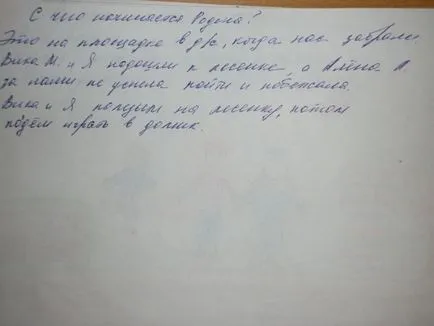 С что начинается Родина?
Это на площадке в д/с, когда нас забрали.
Вика М. и Я подошли к лесенке, а Алёна Л.
за нами не успела пойти и побежала.
Вика и Я полезли на лесенку, потом
пойдём играть в домик.